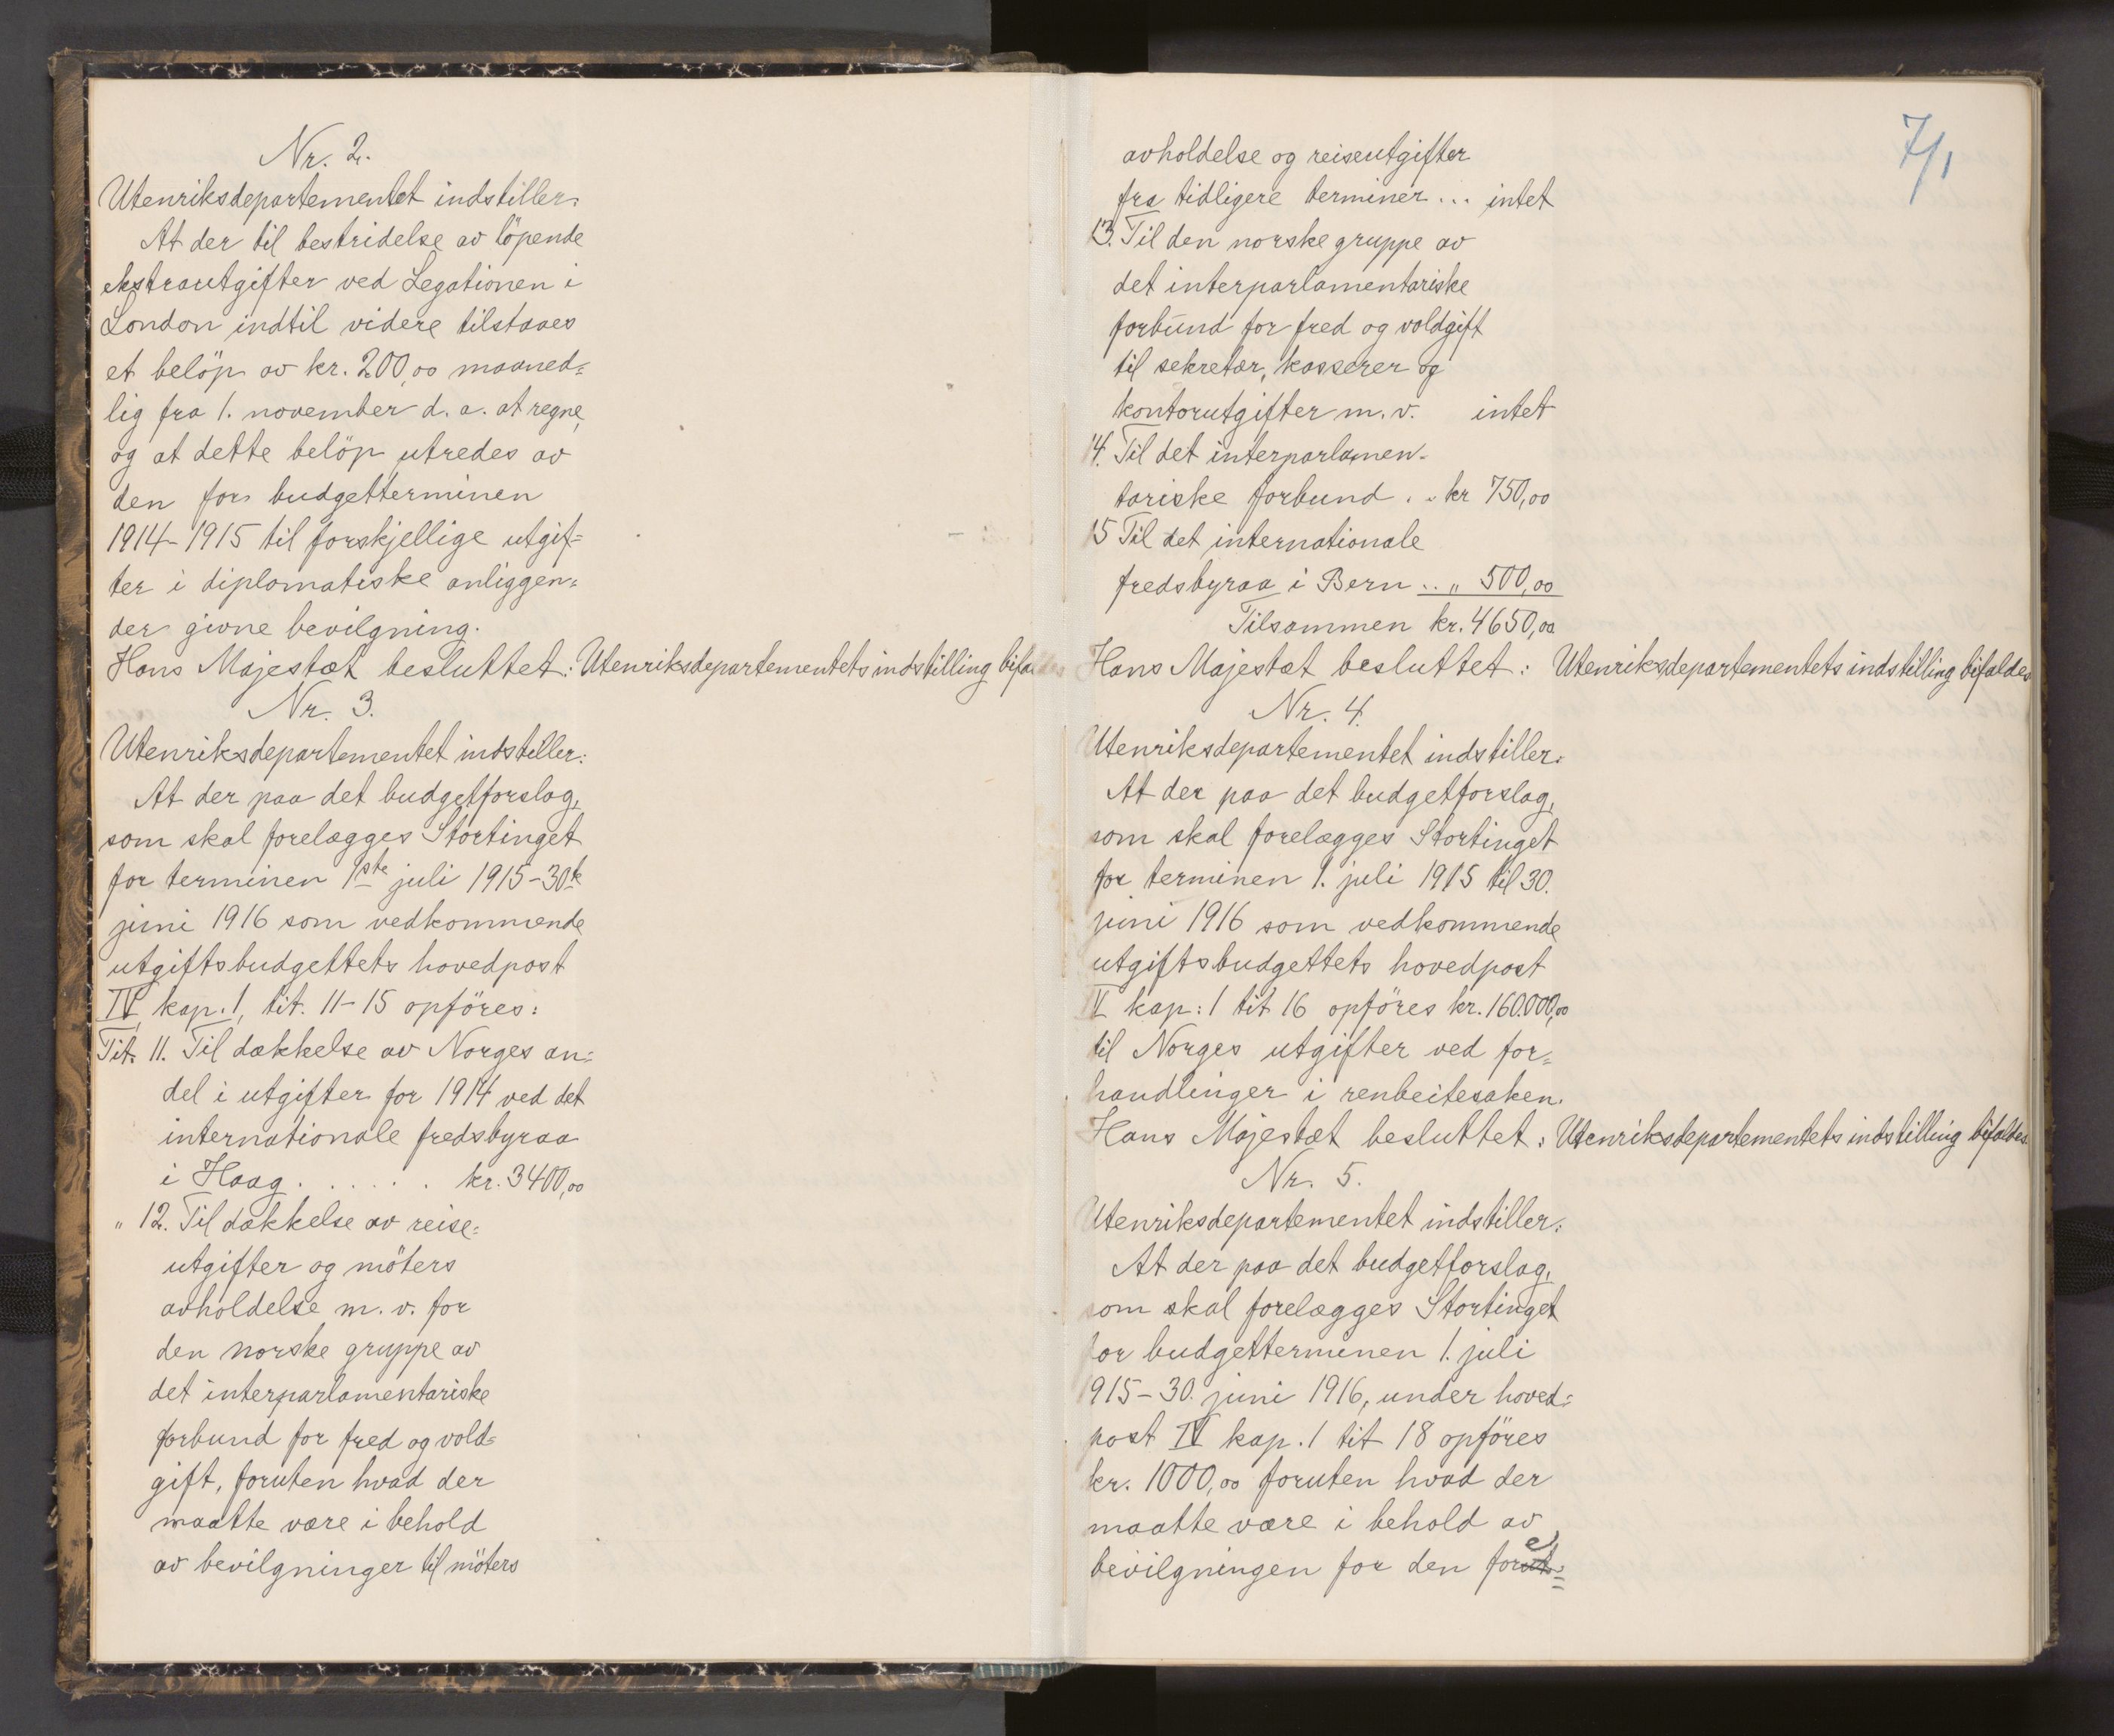 Nr. 2.
Utenriksdepartementet indstiller:
At der til bestridelse av löpende
ekstrautgifter ved Legationen i
London indtil videre tilstaaes
et belöp av kr. 200,00 maaned=
lig fra 1. november d. a. at regne,
og at dette belöp utredes av
den for budgetterminen
1914-1915 til forskjellige utgif=
ter i diplomatiske anliggen=
der givne bevilgning.
Hans Majestæt besluttet: Utenriksdepartementets indstilling bifaldes
Nr. 3.
Utenriksdepartementet indstiller:
At der paa det budgetforslag,
som skal forelægges Stortinget
for terminen 1ste juli 1915-30te
juni 1916 som vedkommende
utgiftsbudgettets hovedpost
IV kap. 1, tit. 11-15 opföres:
Tit. 11. Til dækkelse av Norges an=
del i utgifter for 1914 ved det
internationale fredsbyraa
i Haag . . . . . kr. 3400,00
" 12. Til dækkelse av reise=
utgifter og möters
avholdelse m. v. for
den norske gruppe av
det interparlamentariske
forbund for fred og vold=
gift, foruten hvad der
maatte være i behold
av bevilgninger til möters
7/1
avholdelse og reiseutgifter
fra tidligere terminer... intet
13. Til den norske gruppe av
det interparlamentariske
forbund for fred og voldgift
til sekretær, kasserer og
kontorutgifter m. v. intet
14. Til det interparlamen-
tariske forbund . . kr 750,00
15 Til det internationale
fredsbyraa i Bern .. " 500,00
Tilsammen kr. 4650,00
Hans Majestæt besluttet: Utenriksdepartementets indstilling bifaldes
Nr. 4.
Utenriksdepartementet indstiller:
At der paa det budgetforslag,
som skal forelægges Stortinget
for terminen 1. juli 1915 til 30.
juni 1916 som vedkommende
utgiftsbudgettets hovedpost
IV kap: 1 tit 16 opföres kr. 160.000,00
til Norges utgifter ved for=
handlinger i renbeitesaken.
Hans Majestæt besluttet: Utenriksdepartementets indstilling bifaldes.
Nr. 5.
Utenriksdepartementet indstiller:
At der paa det budgetforslag,
som skal forelægges Stortinget
for budgetterminen 1. juli
1915-30. juni 1916, under hoved=
post IV kap. 1 tit 18 opföres
kr. 1000,00 foruten hvad der
maatte være i behold av
bevilgningen for den fore=